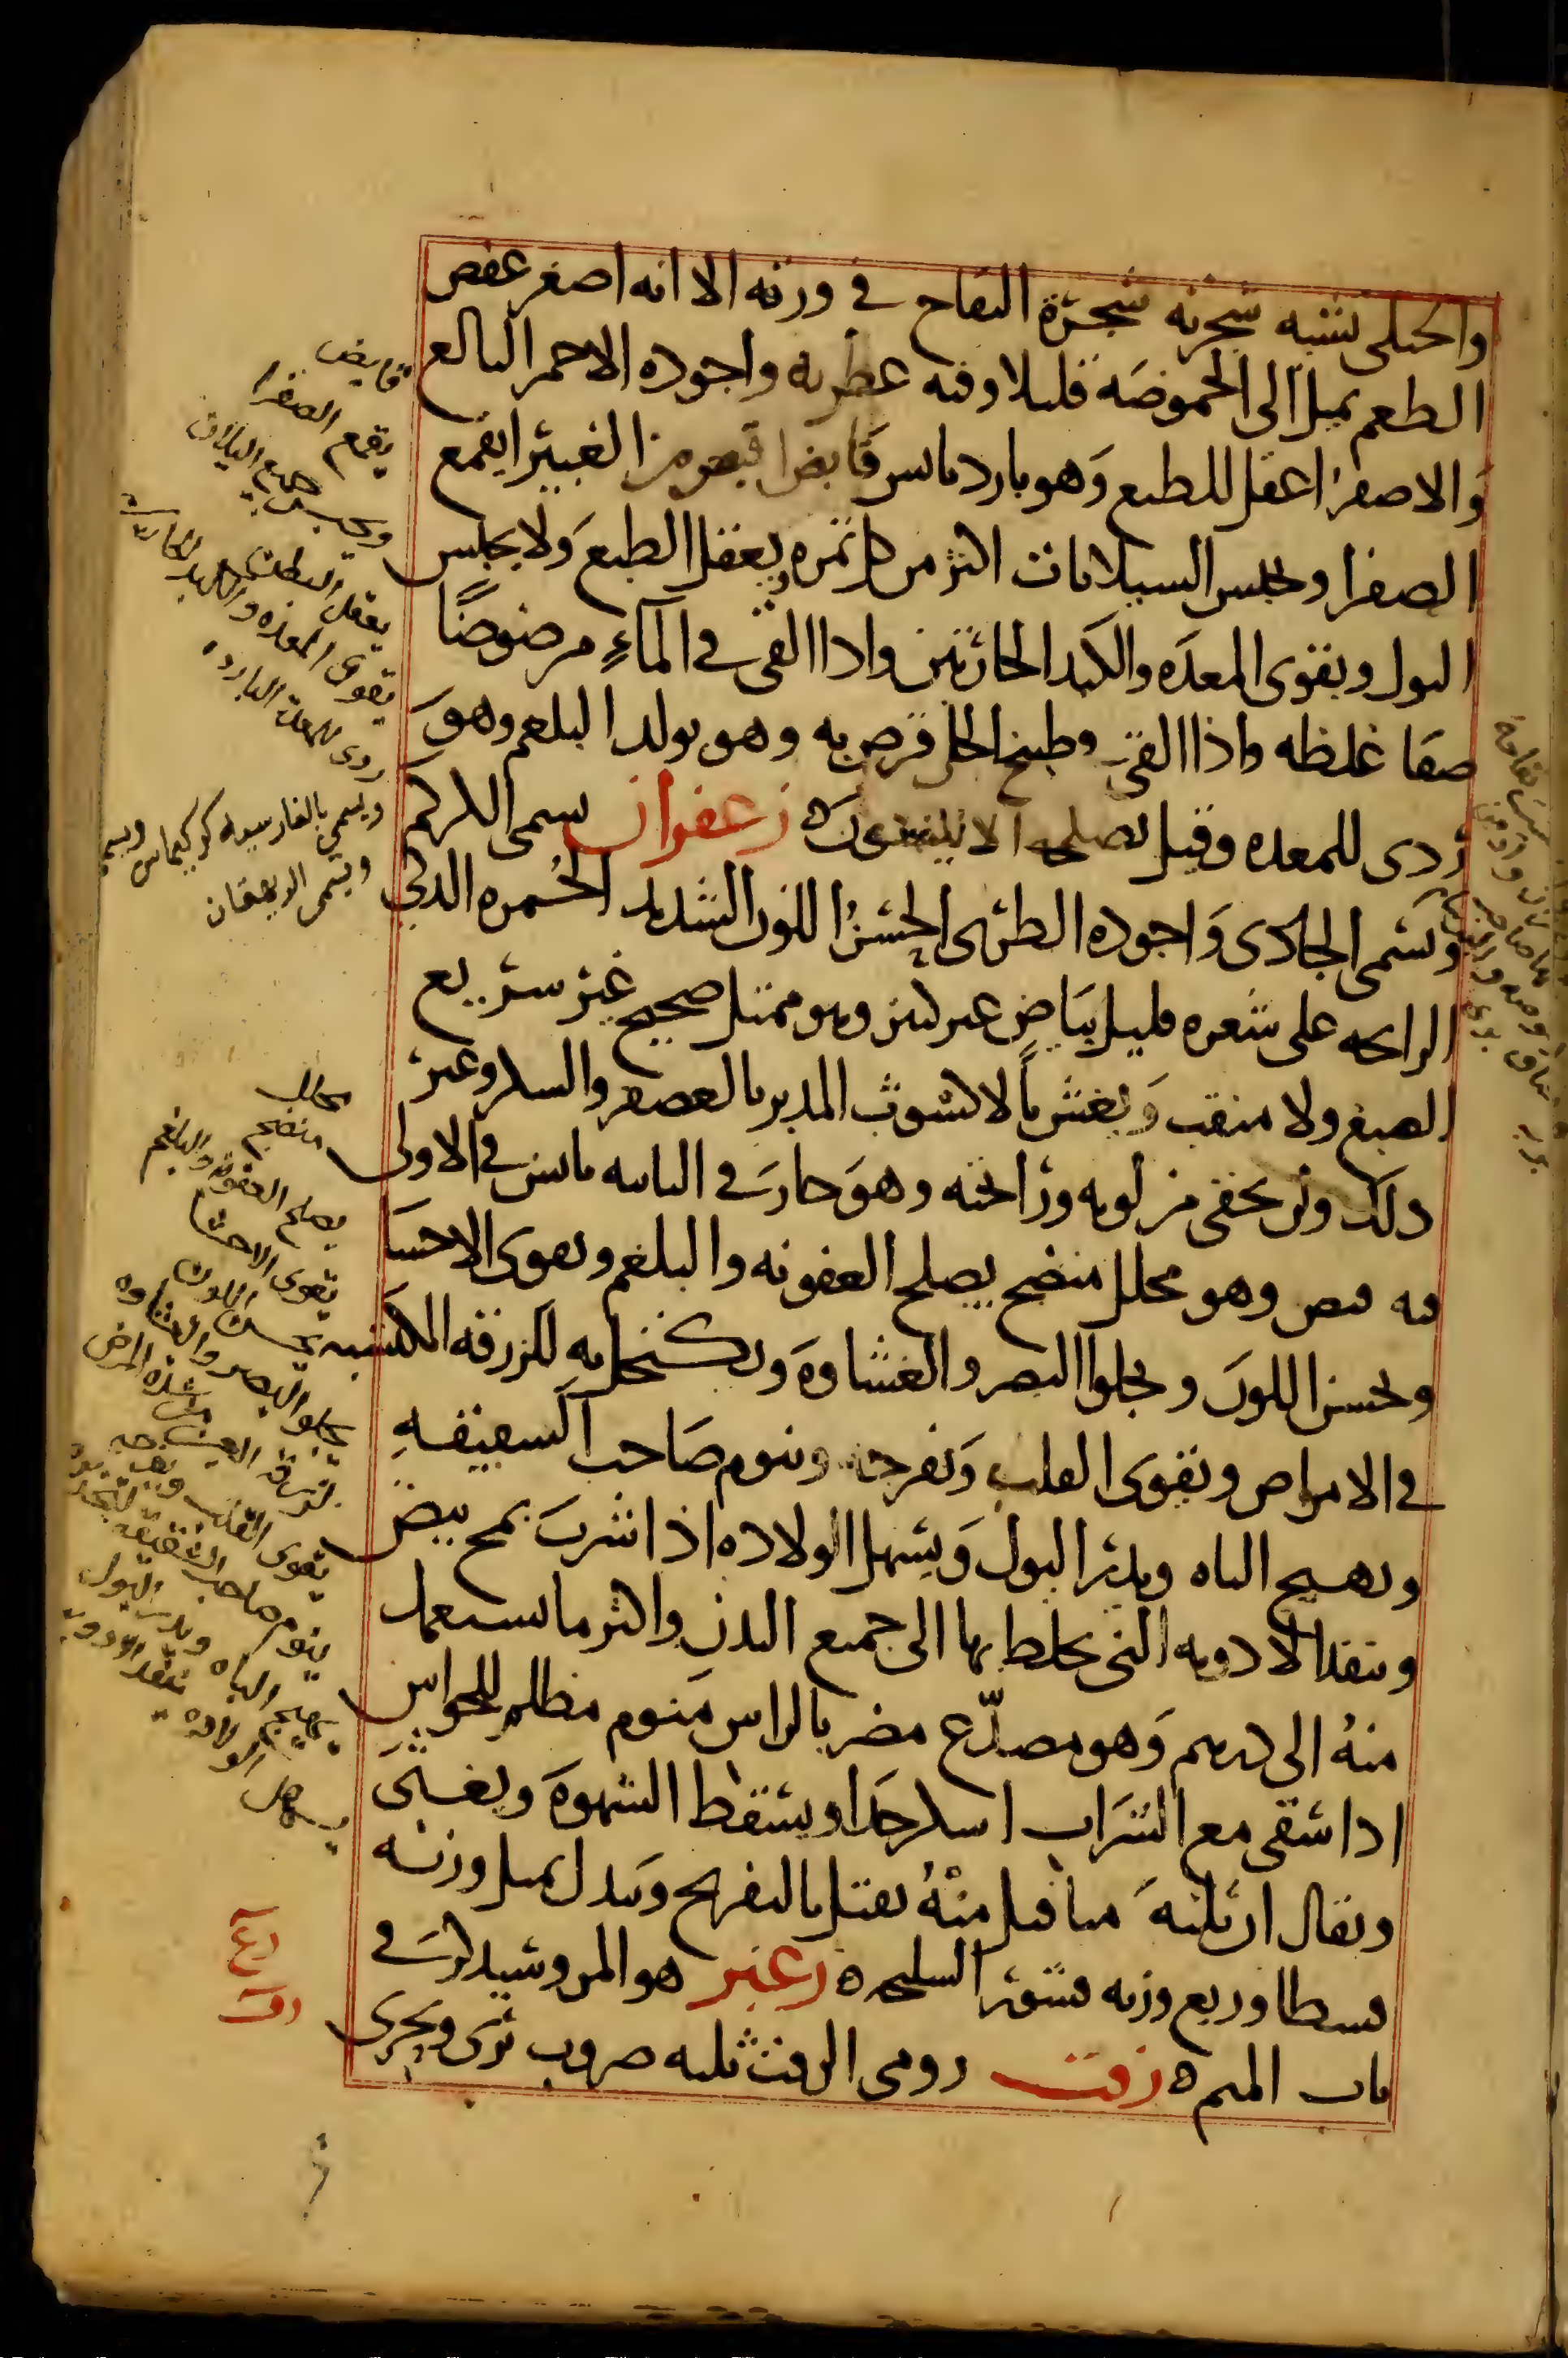 والجبلى يشبه شجرته شجرة التفاح فى ورقه الا انه اصغر عفص
الطعم يميل الى الحموضه قليلا وفيه عطريه واجوده الاحمر البالغ
والاصفر اعقل للطبع وهو بارد يابس قابض اقبض من الغبيرا يقمع
الصفرا ويحبس السيلانات اكثر من كل ثمره ويعقل الطبع ولا يحبس
البول ويقوى المعده والكبد الحارتين واذا القى فى الماء مرضوضا
صفا غلظه واذا القى وطبخ الخل به وهو يولد البلغم وهو
ردى للمعده وقيل يصلحه الانيسون ه زعفران يسمى الكركم
ويسمى الجادى واجوده الطرى الحسن اللون الشديد الحمره الذكى
الرايحه على شعره قليل بياض غير كثير وهو ممتلى صحيح غير سريع
الصبغ ولا متقب ويغش بالاشوث المدبر بالعصفر والسلا وغير
ذلك ولن يخفى من لونه ورائحته وهو حار فى الثانيه يابس فى الاولى
فيه قبض وهو محلل منضج يصلح العفونه والبلغم ويقوى الاحشا
ويحسن اللون ويجلوا البصر والغشاوه ويكتحل به للزرقه المكتسبه
فى الامراض ويقوى القلب ويفرحه وينوم صاحب الشقيقه
ويهيج الباه ويدر البول ويسهل الولاده اذا شرب بمح بيض
وينفذ الادويه التى يخلط بها الى جميع البدن واكثر ما يستعمل
منه الى درهم وهو مصدع مضر بالراس منوم مظلم للحواس
اذا سقى مع الشراب اسكر جدا ويسقط الشهوه ويغثى
ويقال ان ثلثه مثاقيل منه يقتل بالتفريح وبدل مثل وزنه
قسطا وربع وزنه قشور السليخه ه زغبر هو المرو وسيذكر فى
باب الميم ه زفت رومى الزفت ثلثه ضروب برى وبحرى
قابض
يقمع الصفرا
ويحبس جميع السيلان
يعقل البطن
يقوى المعده والكبد الحاره
ردى للمعده البارده
ويسمى بالفارسيه كركيماس ويسمى
ويسمى الريهقان
محلل
منضج
يصلح العفونه والبلغم
يقوى الاحشا
يحسن اللون
يجلو البصر والغشاوه
لزرقة العين من شدة المرض
يقوى القلب ويفرحه
ينوم صاحب الشقيقه
يهيج الباه ويدر البول
يسهل الولاده ينفذ الادويه
زغ
زفت